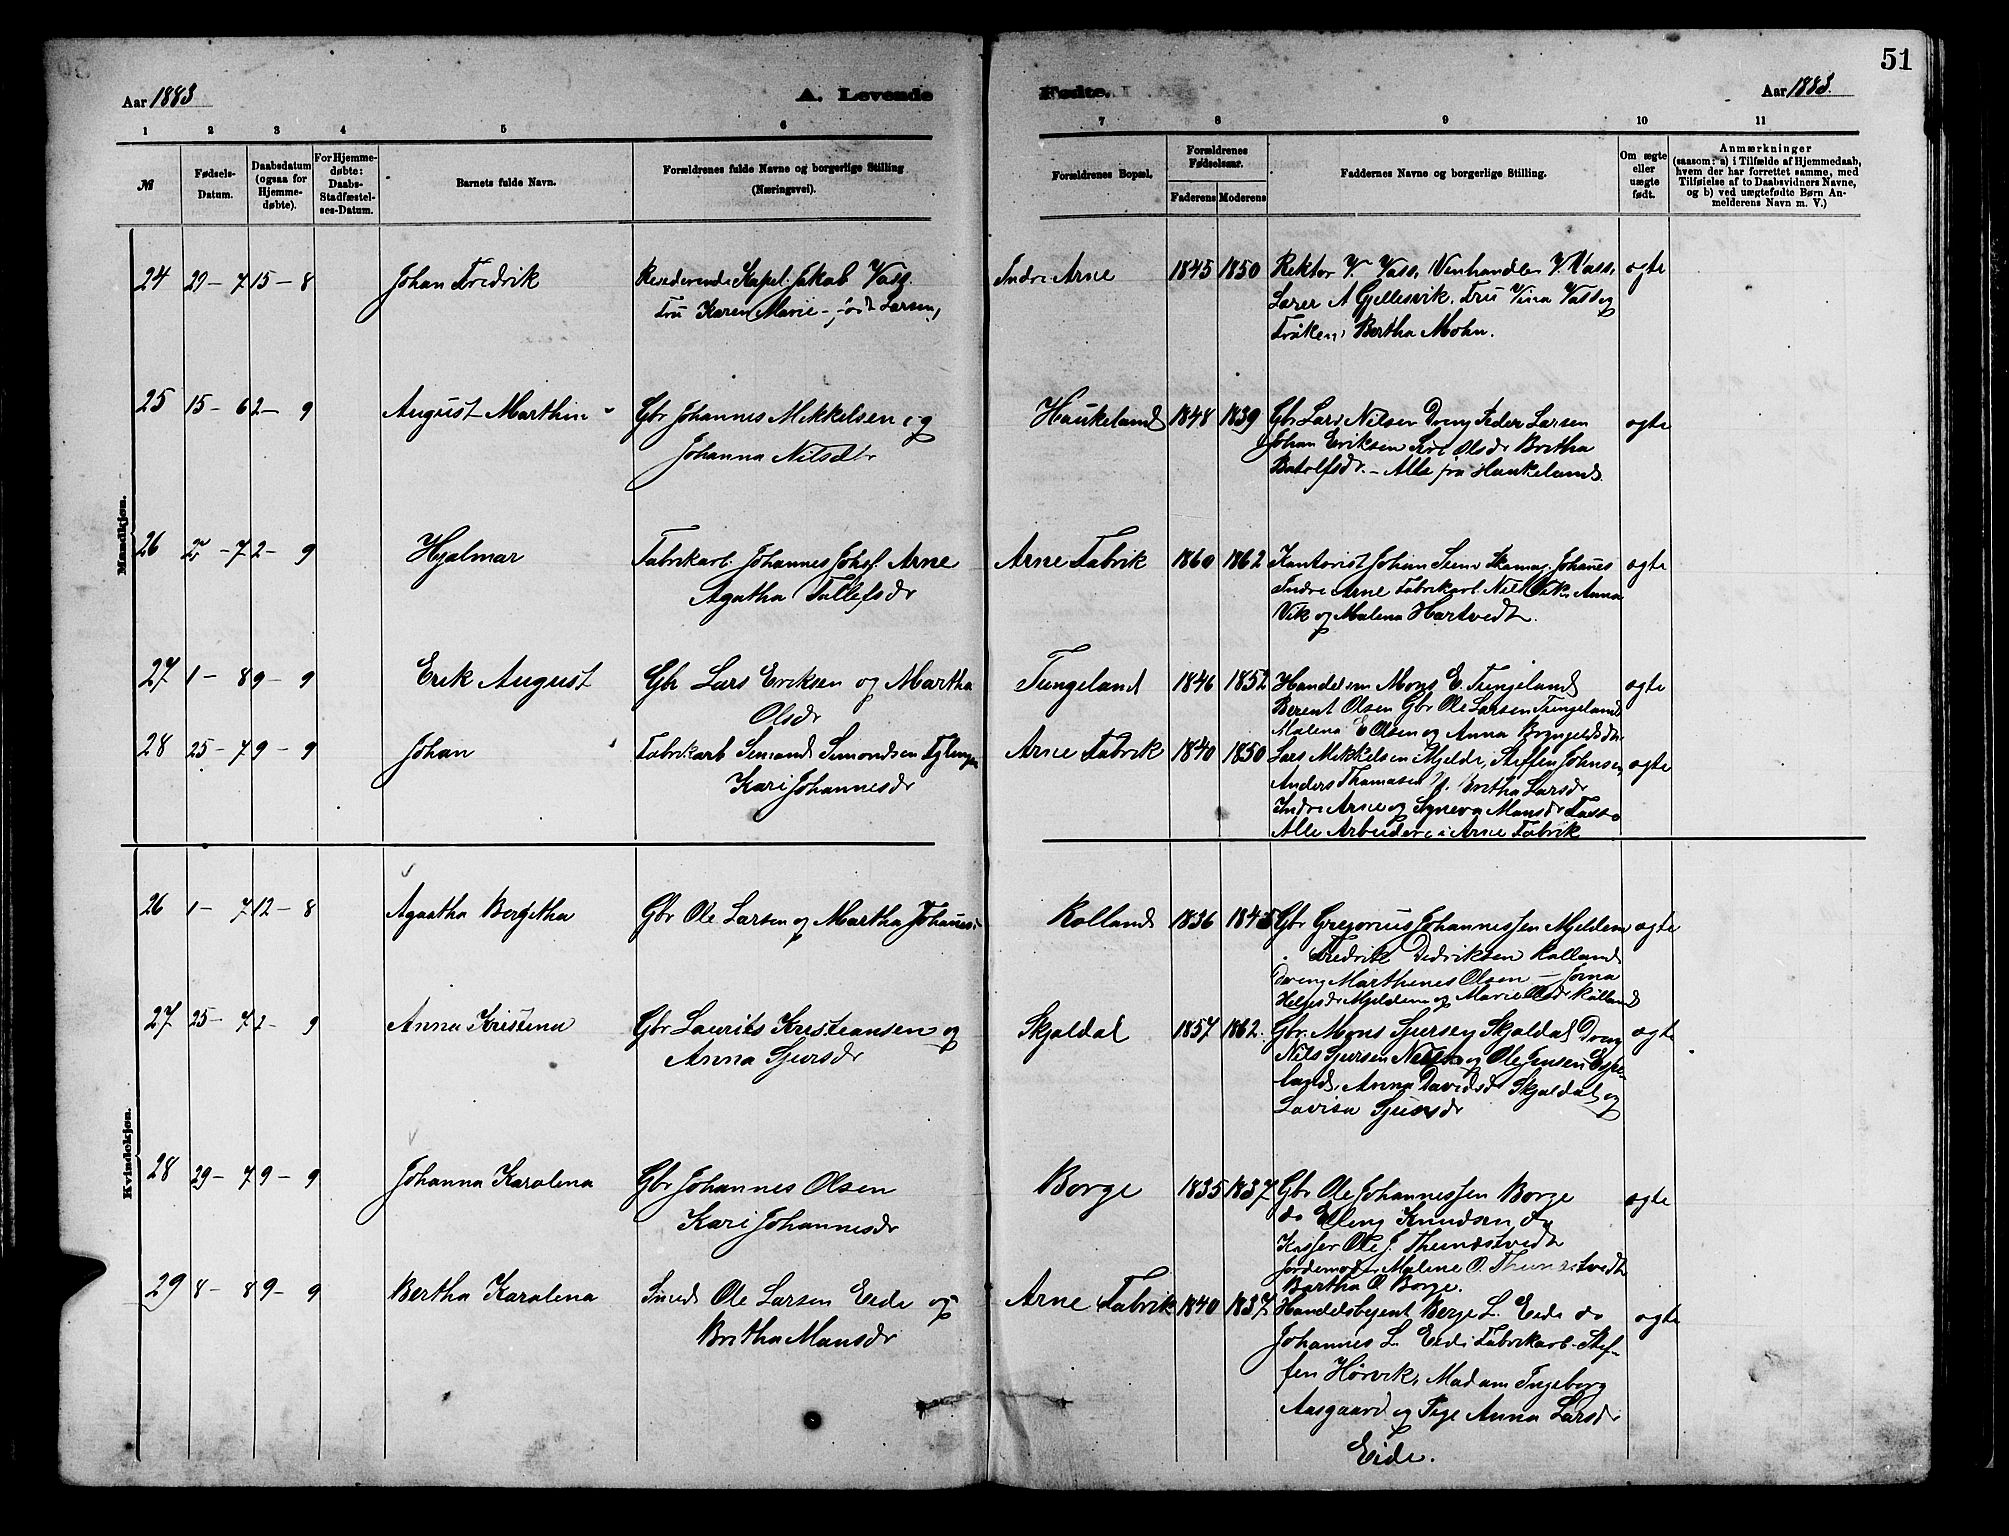 51
Aar 1883
A. Levende
Fødte.
Aar 1883.
1 2 3 4 5 6
7 8 9 10 11
№
Fødsels-Datum.
Daabsdatum (ogsaa for Hjemme-døbte).
For Hjemme-døbte: Daabs-Stadfæstel-ses-Datum.
Barnets fulde Navn.
Forældrenes fulde Navne og borgerlige Stilling (Næringsvei).
Forældrenes Bopæl.
Forældrenes Fødselsaar.
Faderens Moderens
Faddernes Navne og borgerlige Stilling.
Om ægte eller uægte født.
Anmærkninger
(saasom: a) i Tilfælde af Hjemmedaab,
hvem der har forrettet samme, med
Tilføielse af to Daabsvidners Navne,
og b) ved uægtefødte Børn An-
melderens Navn m. V.)
Mandkjøn.
24 29-7 15-8 Johan Fredrik Residerende Kapel. Jakob Vass. Indre Arne 1845 1850 Rektor V. Vass, Vinhandler V. Vass, ægte
Fru Karen Marie født Larsen, Lærer A Gjellesvik. Fru Vina Vass og
Frøken Bertha Mohn.
25 15-6 2-9 August Marthin Gbr Johannes Mikkelsen og Haukeland 1848 1839 Gbr Lars Nilsen Dreng Peder Larsen ægte
Johanna Nilsdtr Johan Eriksen Siri Olsdr Britha
Botolfsdr. - Alle fra Haukeland.
26 -7 2-9 Hjalmar Fabrikarb. Johannes Johs. Arne Arne Fabrik 1860 1862 Kontorist Johan Skomag. Johanes ægte
Agatha Tollefsdr Indre Arne Fabrikarb. Nils Vik, Anna
Vik og Malena Hartvedt.
27 1-8 9-9 Erik August Gbr Lars Eriksen og Martha Tungeland 1846 1852 Handelsm Mons E. Tungeland ægte
Olsdr Berent Olsen Gbr Ole Larsen Tungeland
Malena E Olsen og Anna Bryngelsdtr
28 25-7 9-9 Johan Fabrikarb Simond Simondsen Arne Fabrik 1840 1850 Lars Mikkelsen Mjelde, Steffen Johnsen, ægte
Kari Johannesdr Anders Thomasen Britha Larsdr
Indre Arne og Synneva Monsdr
Alle Arbeidere i Arne Fabrik
Kvindekjøn.
26 1-7 12-8 Agaatha Bergitha Gbr Ole Larsen og Martha Johanes- Rolland 1836 1845 Gbr Gregorius Johannessen Mjeldem ægte
Fredrik Didriksen Rolland
Dreng Marthines Olsen - Jorna
Helgesdr Mjeldem og Marie Olsdr Rolland
27 25-7 2-9 Anna Kristina Gbr Laurits Kristiansen og Skjoldal 1857 1862. Gbr. Mons Sjursen Skjoldal Dreng ægte
Anna Sjursdr Nils Sjursen og Ole Jensen Espe-
land, Anna Davidsdr Skjoldal og
Lovisa Sjursdr
28 29-7 9-9 Johanna Karolina Gbr Johannes Olsen Borge 1835 1837 Gbr Ole Johannessen Borge ægte
Kari Johannesdr do Elling Knudsen do
Ole J. Thunestvedt
Jordemoder Malene O. Thunestvedt
Bertha O Borge.
29 8-8 9-9 Bertha Karolina Smed Ole Larsen Eide og Arne Fabrik 1840 1837 Handelsbetjent Berge L. Eide do ægte
Britha Monsdr Johannes L. Eide Fabrikarb. Stef-
fen Hørvik, Madam Ingeborg
Aasgaard og Pige Anna Larsdr
Eide.